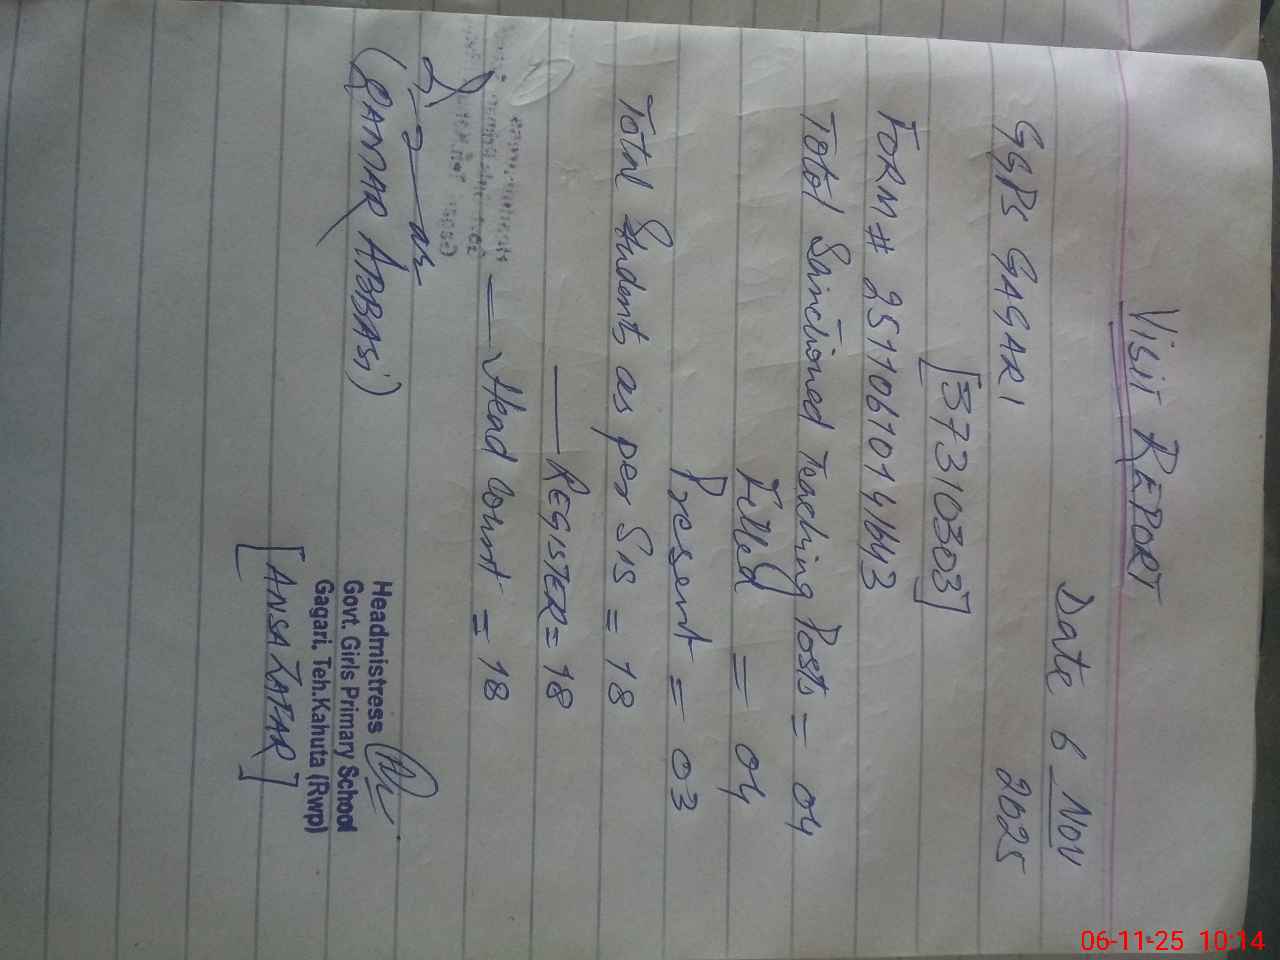 VISIT REPORT
Date 6 Nov
2025
GGPS GAGARI
[37310303]
FORM # 25110610141643
Total Sainctioned Teaching Posts = 04
Filled = 04
Present = 03
Total Students as per SIS = 18
— REGISTER = 18
— Head Count = 18
(QAMAR ABBASi)
Headmistress
Govt. Girls Primary School
Gagari. Teh.Kahuta (Rwp)
[ANSA ZAFAR]
06-11-25 10:14